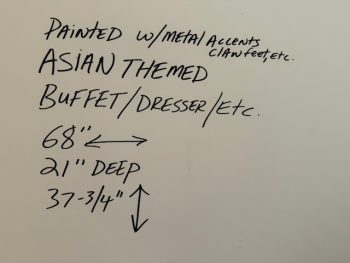 PAINTED W/METAL ACCENTS
CLAWFEET, ETC.
ASIAN THEMED
BUFFET/DRESSER/ETC.
68" ↔
21" DEEP
37-3/4" ↕